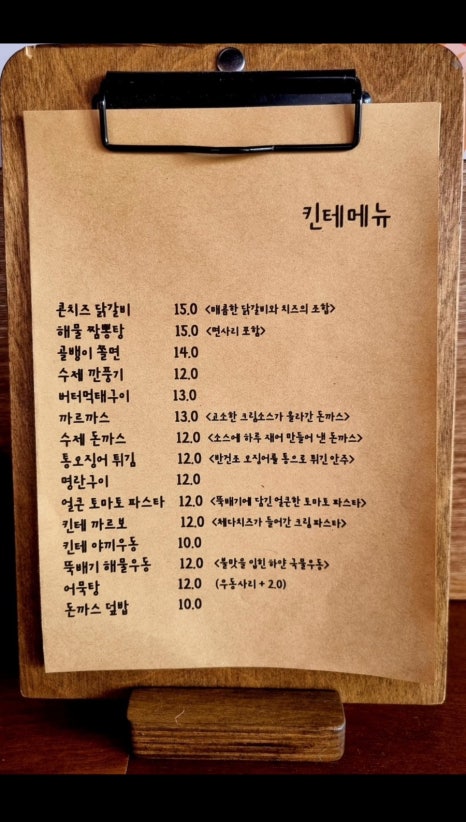 킨테메뉴
콘치즈 닭갈비 15.0 <매콤한 닭갈비와 치즈의 조합>
해물 짬뽕탕 15.0 <면사리 포함>
골뱅이 쫄면 14.0
수제 깐풍기 12.0
버터먹태구이 13.0
까르까스 13.0 <고소한 크림소스가 올라간 돈까스>
수제 돈까스 12.0 <소스에 하루 재어 만들어 낸 돈까스>
통오징어 튀김 12.0 <반건조 오징어를 통으로 튀긴 안주>
명란구이 12.0
얼큰 토마토 파스타 12.0 <뚝배기에 담긴 얼큰한 토마토 파스타>
킨테 까르보 12.0 <체다치즈가 들어간 크림 파스타>
킨테 야끼우동 10.0
뚝배기 해물우동 12.0 <불맛을 입힌 하얀 국물우동>
어묵탕 12.0 (우동사리 + 2.0)
돈까스 덮밥 10.0